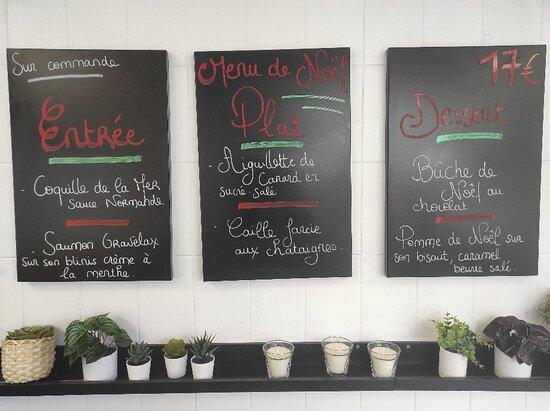 Sur commande
Entrée
- Coquille de la Mer
sauce Normande
- Saumon Gravelax
sur son blinis crème à
la menthe.
Menu de Noël
Plat
- Aiguillette de
Canard en
sucré. salé
- Caille farcie
aux chataignes.
17€
Dessert
Bûche de
Noël au
chocolat
Pomme de Noël sur
son biscuit, caramel
beurre salé.